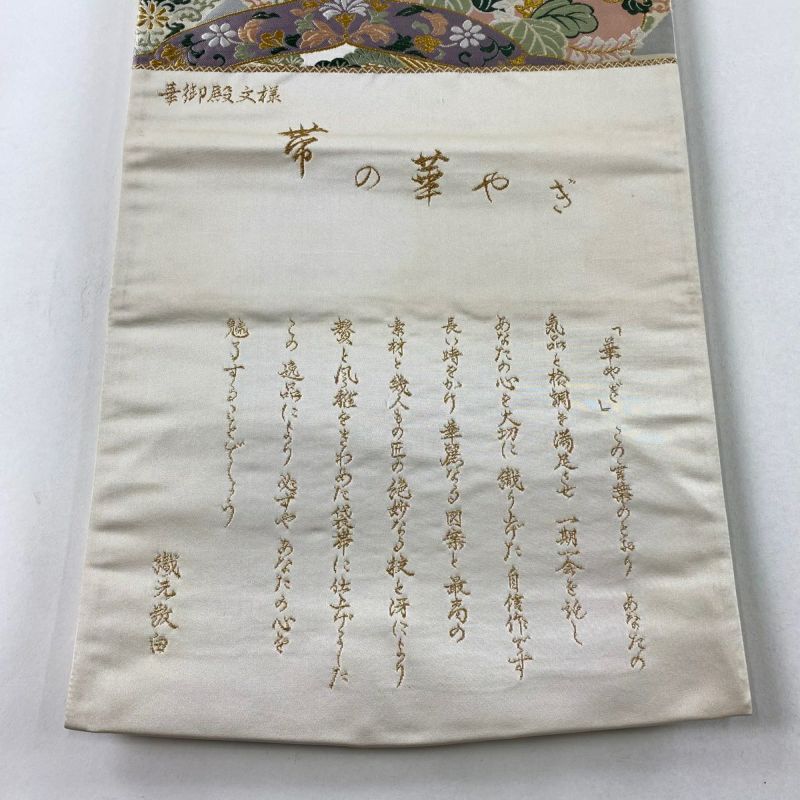 華御殿文様
帯の華やぎ
「華やぎ」この言葉のとおり あなたの
気品と格調を満足させ 一期一会を
あなたの心を大切に 織り上げた 自信作です
長い時をかけ 華麗なる図案と最高の
素材と幾人もの匠の絶妙なる技と冴により
贅と風雅をきわめた袋帯に仕上げました
この逸品により 必ずや あなたの心を
魅了するでしょう
織元敬白